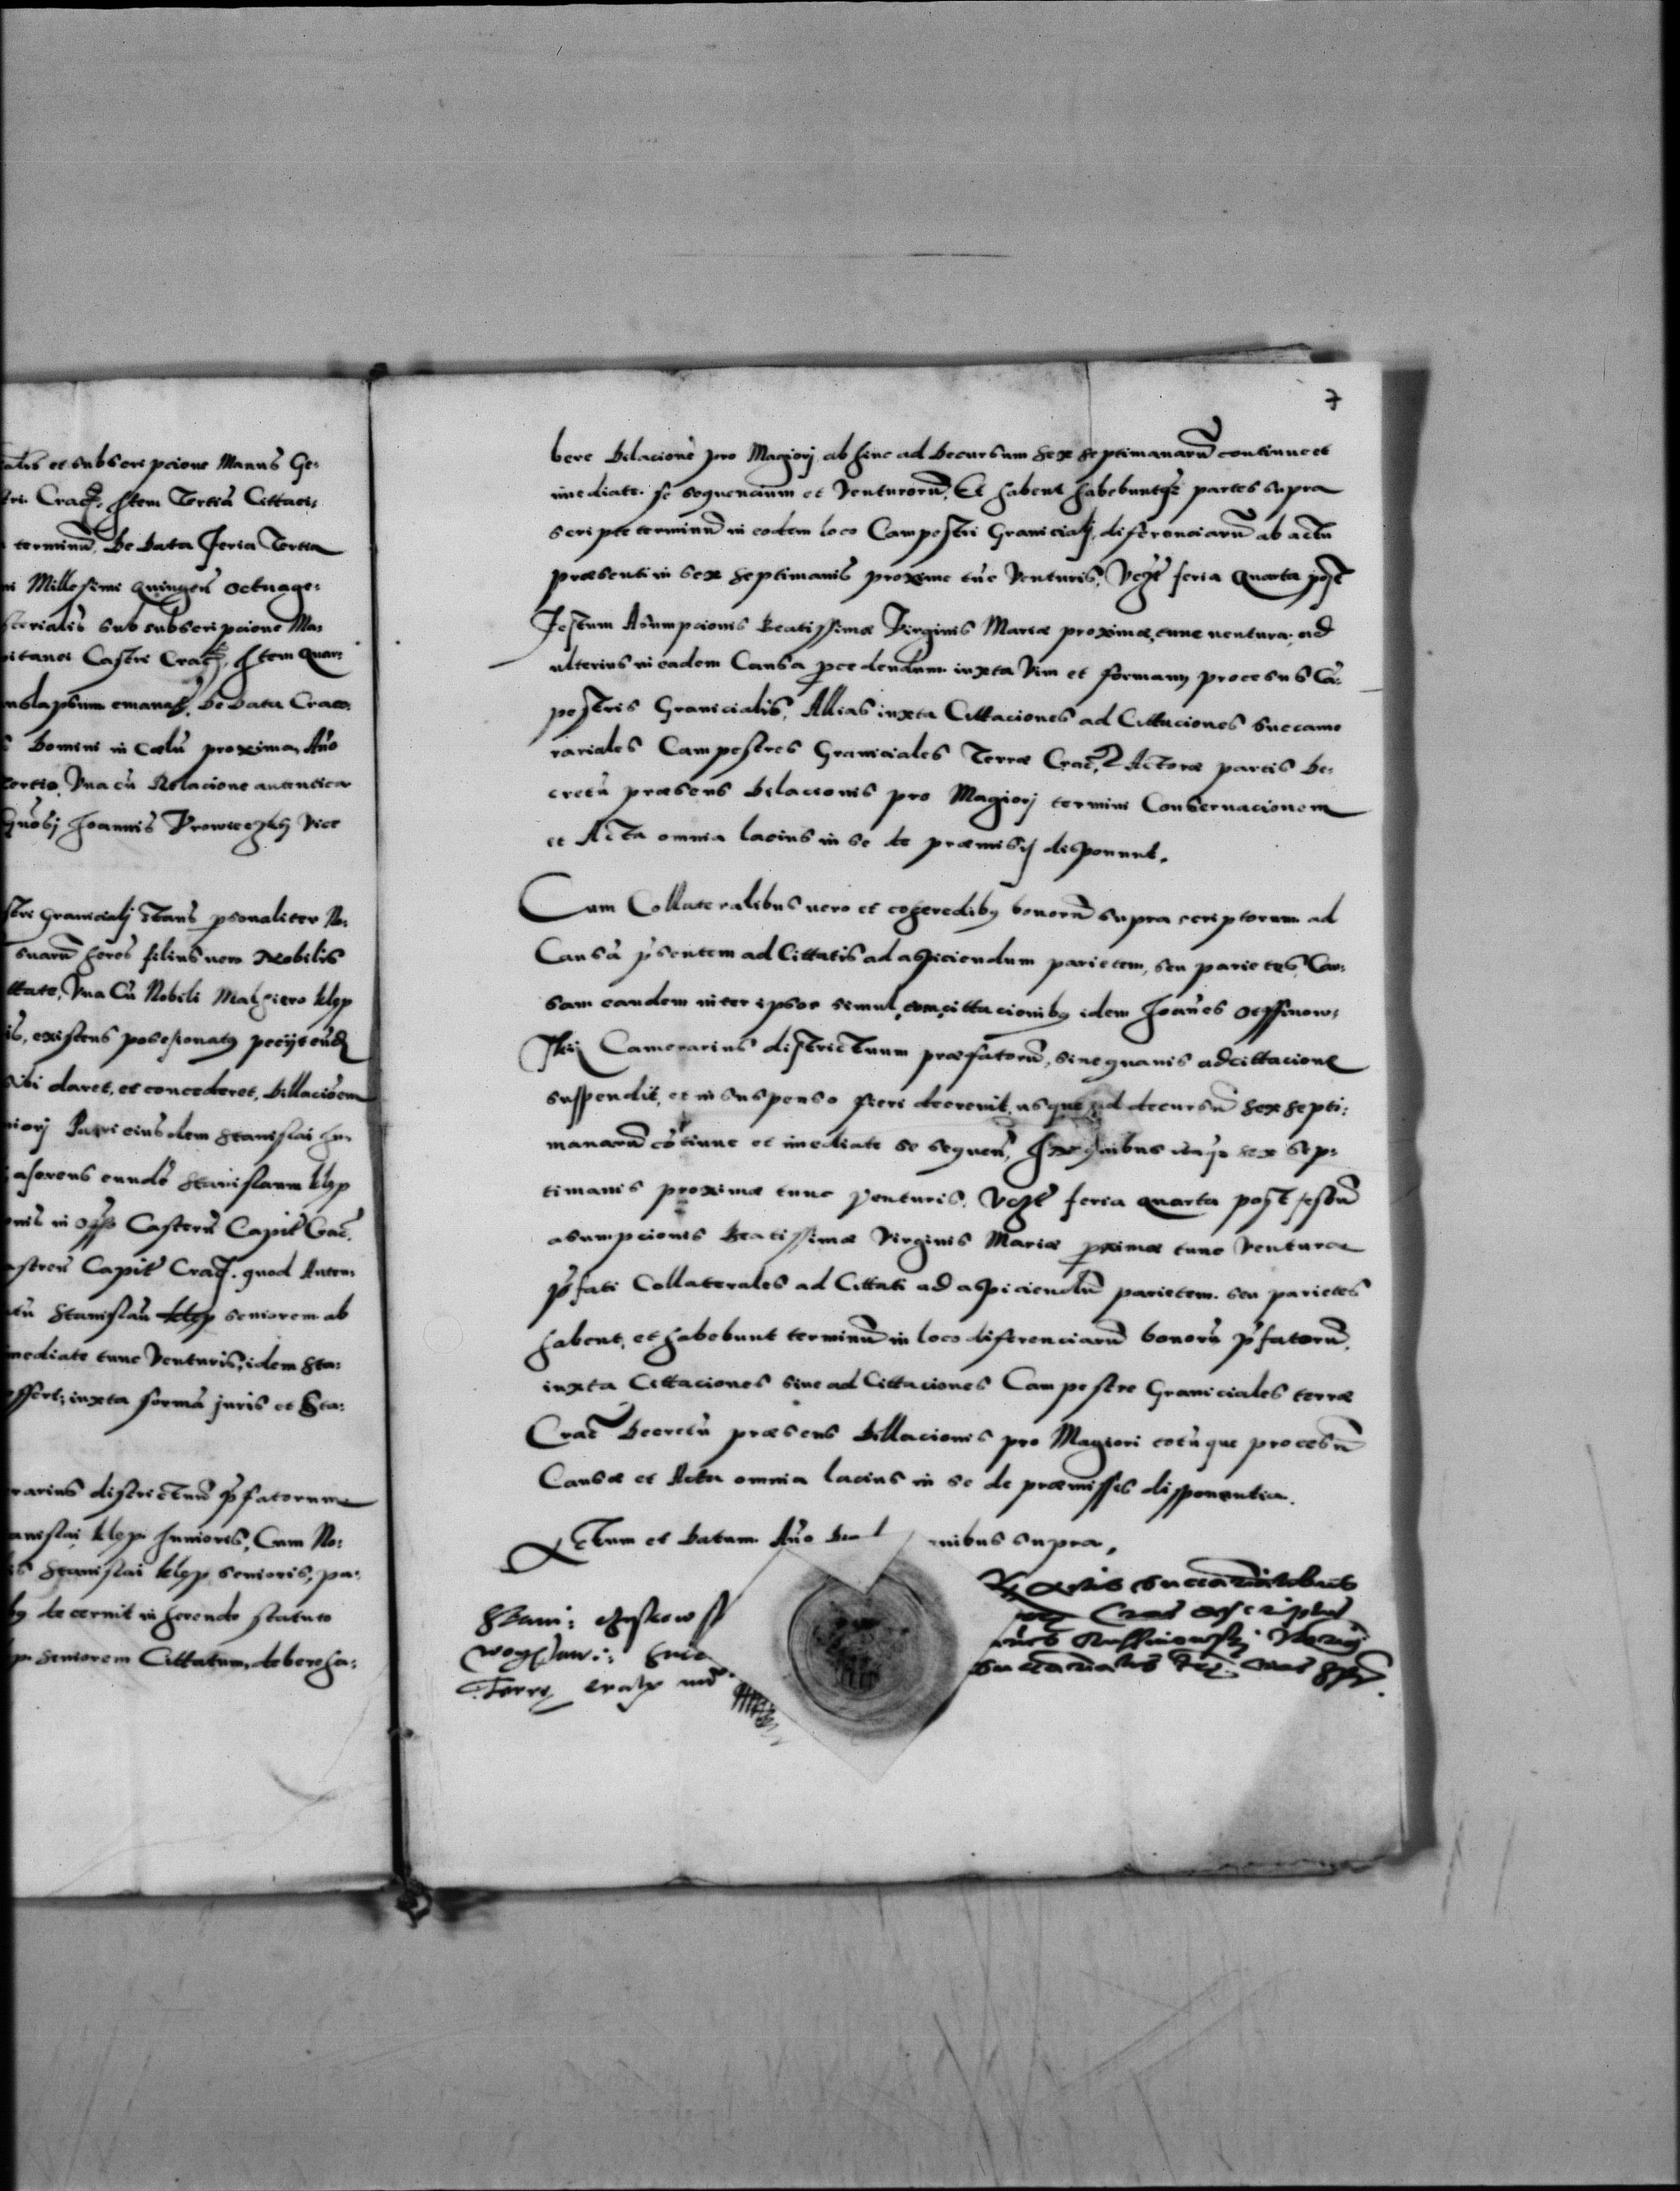 atis et subscripcione Manus Ge:
tri Crac. Item Tertia Cittaci:
terminu, De Data Feria Tertia
ni Millesimi quingen octuage:
sterialis sub subscripcione Ma:
pitanei Castri Crac, Item Quar:
nslapsum emanas, De Data Crac:
s Domini in Coelu proxima Ano
tertio, Una cu Relacione autentica
Gnosi Joannis Proweczky Vice
stri Granicialj Stans psonaliter No:
suaru heres filius uero Nobilis
ttate, Una Cu Nobili Malchiero klep
is, existens posesionatq peciyt
sibi daret, et concederet, Dillacioem
niorj Patri eiusdem Stanislai Ju:
aserens eunde Stanislaum klep
onis in Offo Castren Capit Crac.
astren Capit Crac. quod Autem
tu Stanislau klep seniorem ab
mediate tunc Venturis, idem Sta:
ffert, iuxta forma juris et Sta:
rarius districtuu pfatorum
anislai klepi Junioris, Cum No:
is Stanislai klep senioris, pa:
by decernit inherendo statuto
p Seniorem Cittatum, debere ha:
7
bere Dilacione pro Magiorj ab hinc ad Decursum Sex Septimanaru continue et
imediate se sequencium et Venturoru. Et habent habebuntqz partes supra
scripte terminu in eodem loco Campestri Granicialj, diferenciaru ab actu
praesenti in sex Septimanis proxime tuc Venturis, Vczt feria Quarta post
Festum Asumpcionis Beatissimae Virginis Mariae proximae, tunc uentura, ad
ulterius in eadem Causa pcedendum iuxta Vim et formam procesus Ca:
pestris Granicialis, Allias iuxta Cittaciones ad Cittaciones Succame
rariales Campestres Graniciales Terrae Crac, Actorae partis De:
cretu praesens Dilacionis pro Magiorj termini Conseruacionem
et Acta omnia lacius in se de praemisj disponunt.
Cum Collateralibus uero et coheredibq bonoru supra scriptorum ad
Causa psentem ad Cittatis ad aspiciendum parietem, seu parietes, Cau:
sam eandem inter ipsos simul, cum, cittacionibq idem Joanes Ocssinow:
skij Camerarius districtuum praefatoru, siue quauis adcittacione
suspendit, et in suspenso fieri decreuit, usque ad decursu Sex Septi:
manaru cotinue et imediate se sequen, In quibus sex Sep:
timanis proximae tunc Venturis, Vczt feria quarta post festu
asumpcionis Beatissimae Virginis Mariae pximae tunc Ventura
pfati Collaterales ad Cittati ad aspiciendu parietem seu parietes
habent, et habebunt terminu in loco diferenciaru bonoru pfatoru,
iuxta Cittaciones siue ad Cittaciones Campestre Graniciales terrae
Crac Decretu praesens Dillacionis pro Magiori totuque procesu
Causae et Acta omnia lacius in se de praemissis disponentia.
Actum et Datum Ano nibus supra,
Terre
Ex Actis Succameralibus